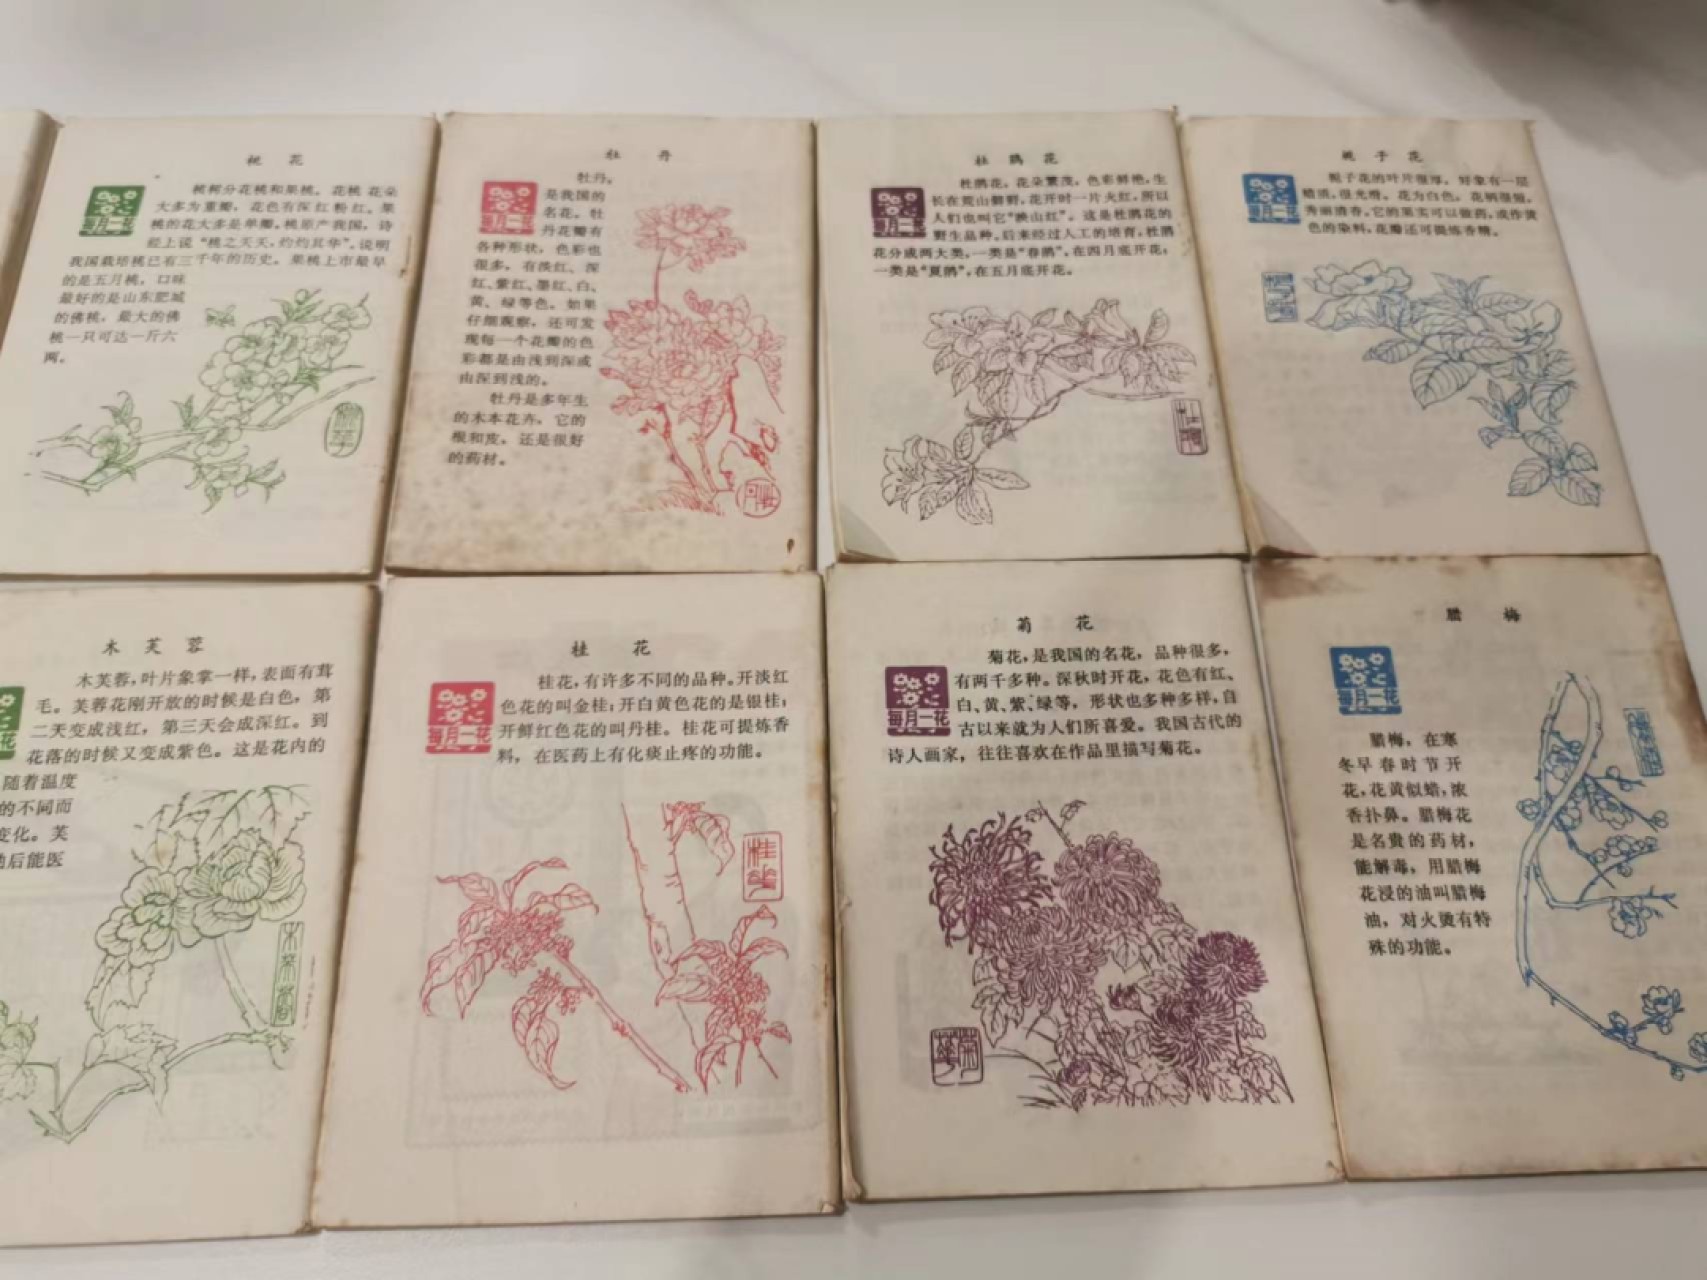 桃花
每月一花
桃树分花桃和果桃。花桃花朵
大多为重瓣，花色有深红粉红。果
桃的花大多是单瓣。桃原产我国，诗
经上说“桃之夭夭，灼灼其华”。说明
我国栽培桃已有三千年的历史。果桃上市最早
的是五月桃，口味
最好的是山东肥城
的佛桃，最大的佛
桃一只可达一斤六
两。
牡丹
每月一花
牡丹，
是我国的
名花。牡
丹花瓣有
各种形状，色彩也
很多，有淡红、深
红、紫红、墨红、白、
黄、绿等色。如果
仔细观察，还可发
现每一个花瓣的色
彩都是由浅到深或
由深到浅的。
牡丹是多年生
的木本花卉，它的
根和皮，还是很好
的药材。
杜鹃花
每月一花
杜鹃花，花朵繁茂，色彩鲜艳，生
长在荒山僻野，花开时一片火红，所以
人们也叫它“映山红”。这是杜鹃花的
野生品种。后来经过人工的培育，杜鹃
花分成两大类，一类是“春鹃”，在四月底开花，
一类是“夏鹃”，在五月底开花。
栀子花
每月一花
栀子花的叶片很厚，好象有一层
蜡质，很光滑。花为白色，花柄很短，
秀丽清香。它的果实可以做药，或作黄
色的染料，花瓣还可提炼香精。
栀子花
木芙蓉
花
木芙蓉，叶片象掌一样，表面有茸
毛。芙蓉花刚开放的时候是白色，第
二天变成浅红，第三天会成深红。到
花落的时候又变成紫色。这是花内的
随着温度
的不同而
变化。芙
后能医
木芙蓉
桂花
每月一花
桂花，有许多不同的品种。开淡红
色花的叫金桂；开白黄色花的是银桂；
开鲜红色花的叫丹桂。桂花可提炼香
料，在医药上有化痰止疼的功能。
桂花
菊花
每月一花
菊花，是我国的名花，品种很多，
有两千多种。深秋时开花，花色有红、
白、黄、紫、绿等，形状也多种多样，自
古以来就为人们所喜爱。我国古代的
诗人画家，往往喜欢在作品里描写菊花。
腊梅
每月一花
腊梅，在寒
冬早春时节开
花，花黄似蜡，浓
香扑鼻。腊梅花
是名贵的药材，
能解毒，用腊梅
花浸的油叫腊梅
油，对火烫有特
殊的功能。